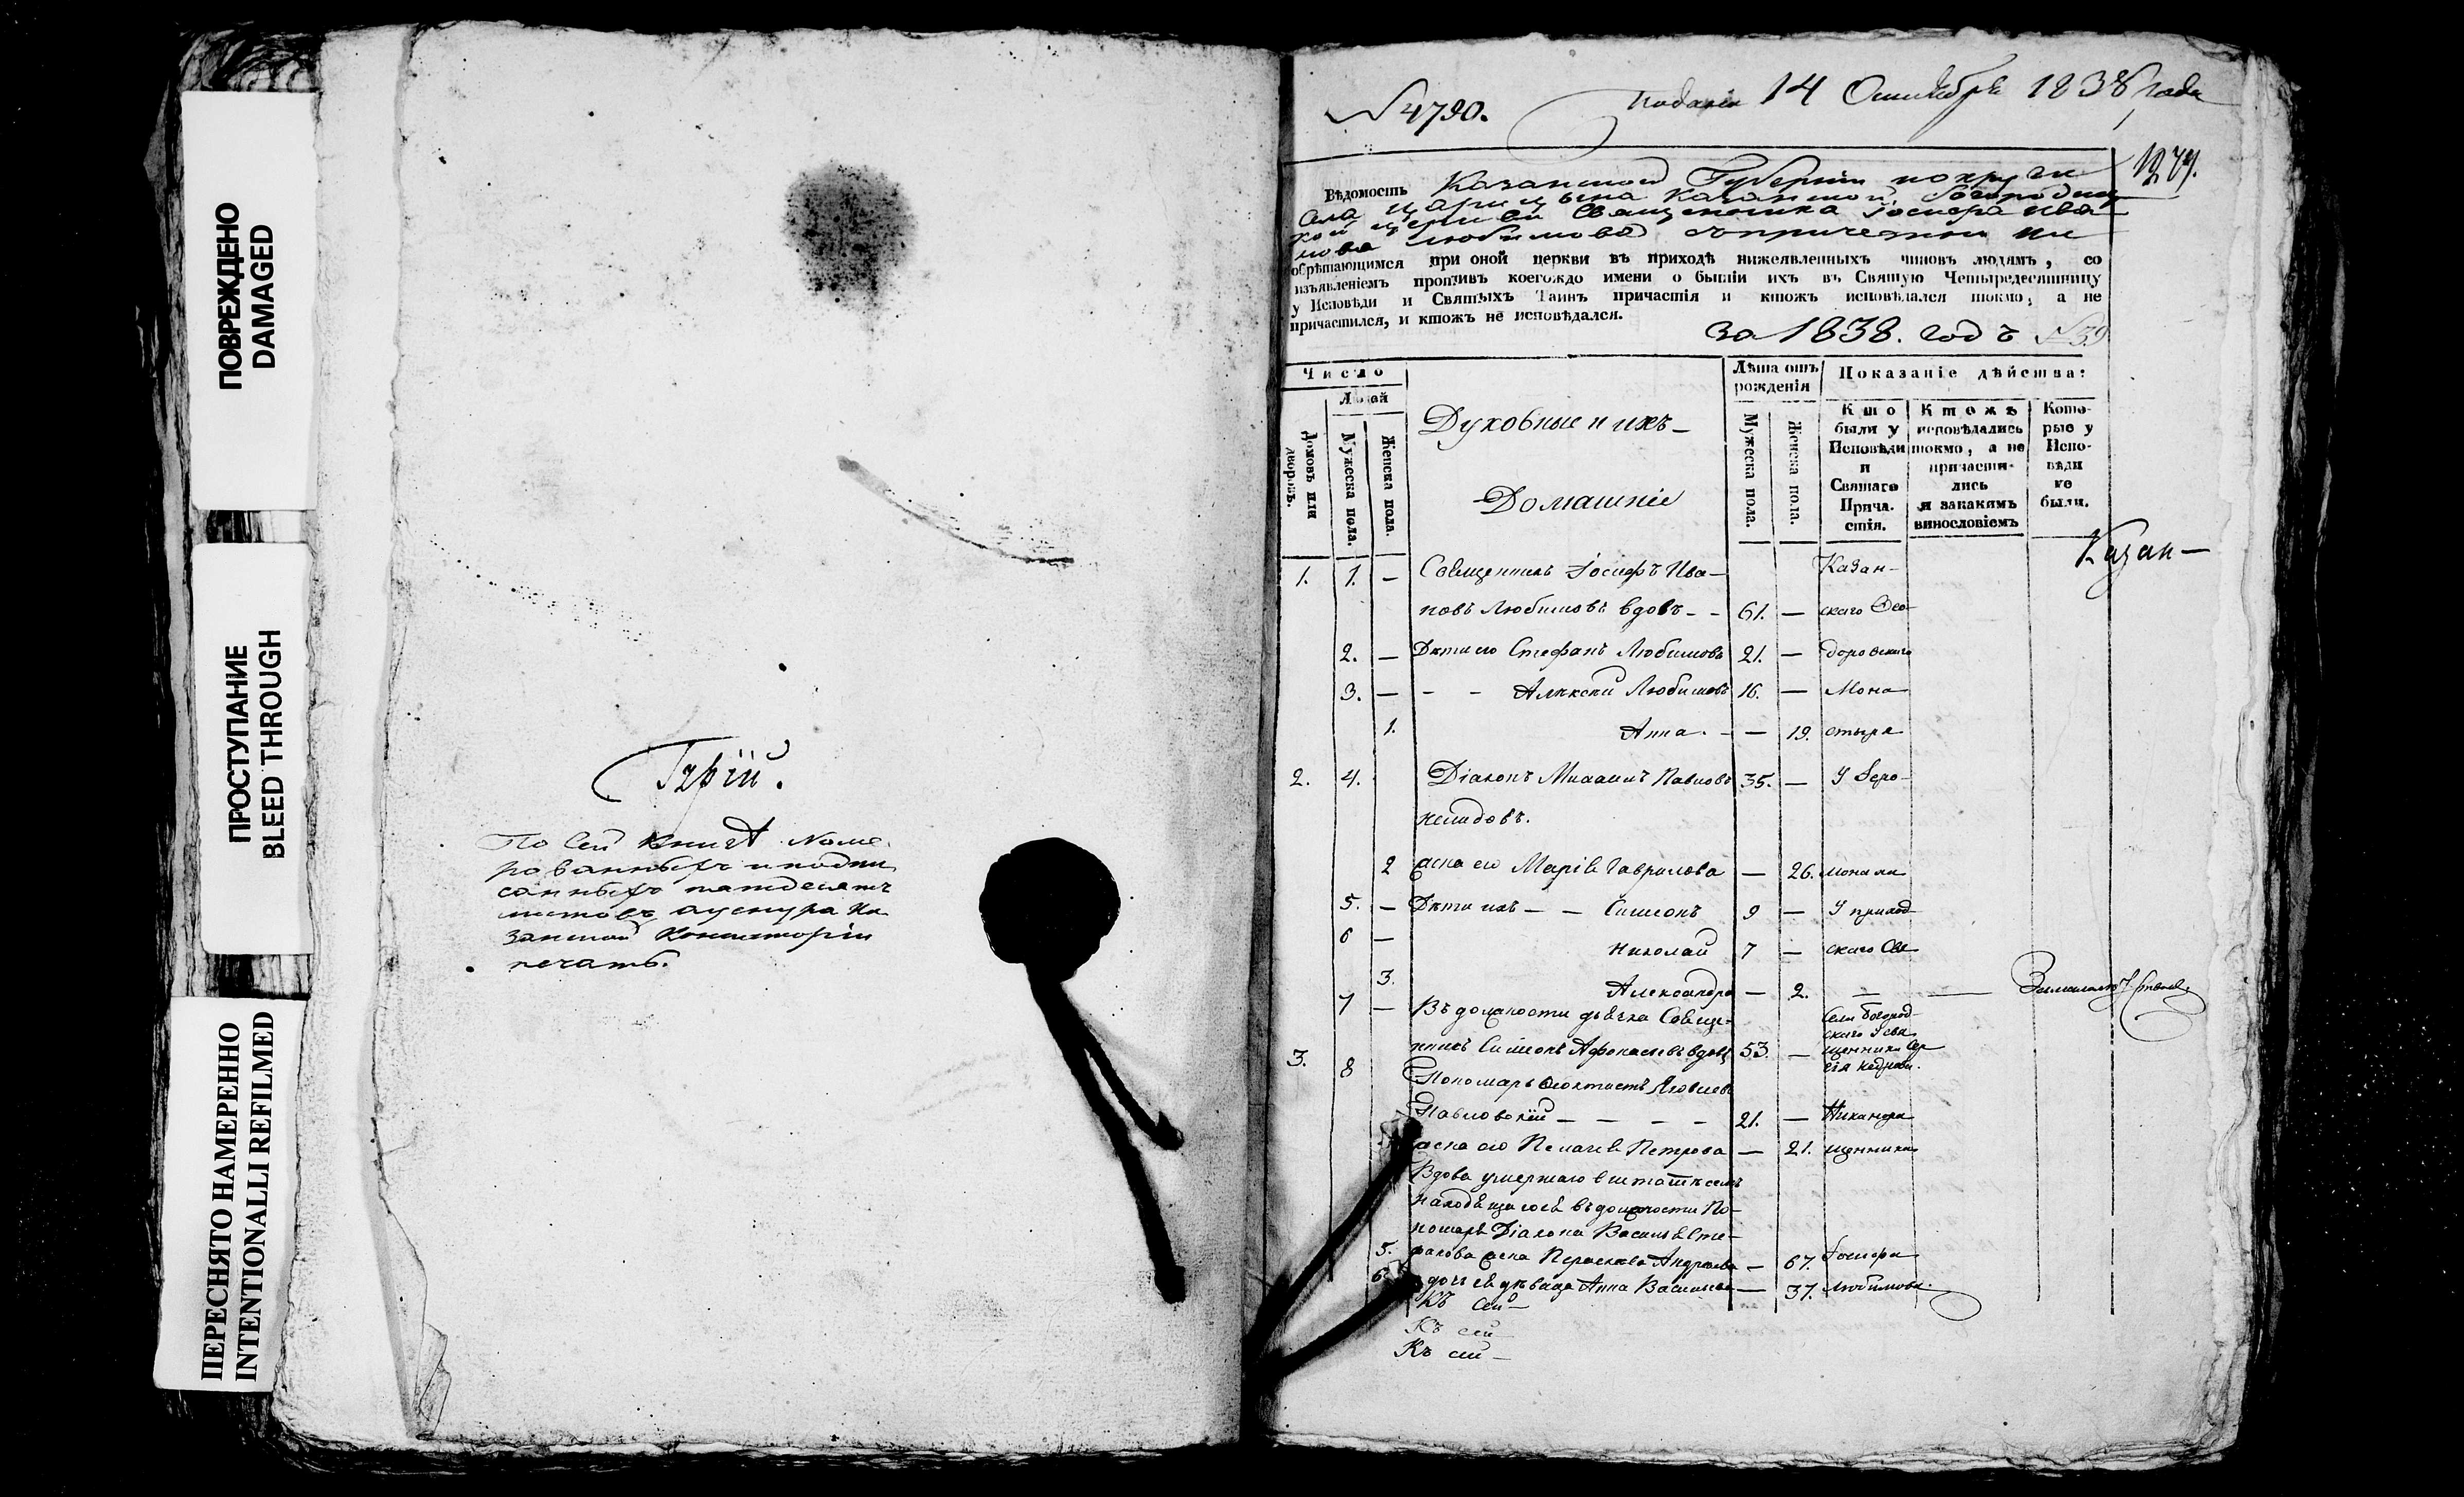 ПОВРЕЖДЕНО
DAMAGED
ПРОСТУПАНИЕ
BLEED THROUGH
ПЕРЕСНЯТО НАМЕРЕННО
INTENTIONALLI REFILMED
Гурій.
По сей книгѣ номе
рованныхъ и подпи
санныхъ пятдесятъ
листовъ, а у снура Ка
занской Консисторіи
печать.
№ 4790.
Подана 14 Октября 1838 года
Вѣдомость Казанской Губерніи
села Царицына Казанской Богородиц
кой церкви Священника Іосифа Ива
нова Любимова съ причетники
обрѣтающимся при оной церкви въ приходѣ нижеявленныхъ чиновъ людямъ, со
изъявленіемъ противъ коегождо имени о бытіи ихъ въ Святую Четыредесятницу
у Исповѣди и Святыхъ Таинъ причастія и ктожъ исповѣдался токмо, а не
причастился, и ктожъ не исповѣдался.
за 1838. годъ № 39
Число
Людей
Домовъ или дворовъ.
Мужеска пола.
Женска пола.
Духовные и ихъ
Домашніе
Лѣта отъ рожденія
Мужеска пола.
Женска пола.
Показаніе дѣйства:
Кто были у Исповѣди и Святаго Прича- стія.
Ктожъ исповѣдались токмо, а не причасти- лись и закакимъ винословіемъ
Кото- рые у Испо- вѣди не были.
Казан—
1. 1. — Священникъ Іосифъ Ива— Казан-
новъ Любимовъ вдовъ - - 61. — скаго Ѳео-
2. — Дѣти его Стефанъ Любимовъ 21. — доровскаго
3. — - - Алексѣй Любимовъ 16. — Мона
1. Анна. - — 19. стыря
2. 4. Діаконъ Михаилъ Павловъ 35. — У Іеро-
2 жена его Марія Гаврилова — 26. монаха
5. — Дѣти ихъ — — Симеонъ 9 — У приход
6 — Николай 7 — скаго Свя
3. Александра — 2. — —
7 — Въ должности дьячка Свяще-
села Богород-
скаго у свя
нникъ Симеонъ Афонасьевъ вдовъ 53. — щенника
3. 8 Пономарь Ѳеоктистъ Яковлевъ
Павловскій — — — — 21. —
жена его Пелагея Петрова — 21. щенника
Вдова умершаго
находящагося въ должности По-
номаря Діакона Василья Сте-
5. фанова жена Параскева Андреева — 67. Іосифа
6 дочь ея дѣвица Анна Васильева — 37. Любимова.
Къ сей
Къ сей
Къ сей —